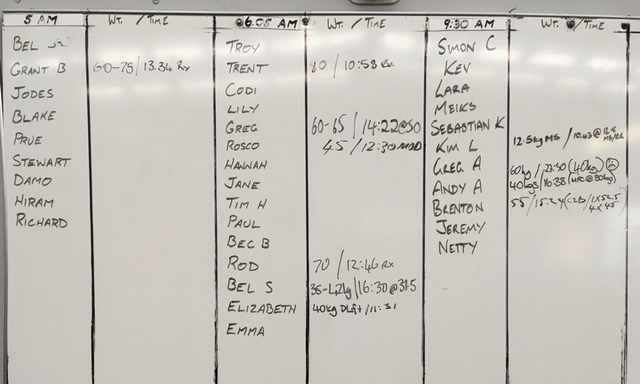 5 AM WT. / TIME 6.05 AM WT. / TIME 9:30 AM WT. / TIME
BEL TROY SIMON C
GRANT B 60-75 / 13.34 Rx TRENT 80 / 10:58 Rx KEV
JODES CODI LARA
BLAKE LILY MEIKS
PRUE GREG 60-65 / 14:22@50 SEBASTIAN K
STEWART ROSCO 45 / 12:30 MOD KIM L 12.5kg MS / 10.43@12.5 MS/RR
DAMO HANNAH GREG A 60kg / 23:50 (40kg)
HIRAM JANE ANDY A 40kgs / 16:38 (@80kg)
RICHARD TIM H BRENTON 55 / 15.24 / 1x52.5 4x45
PAUL JEREMY
BEC B NETTY
ROD 70 / 12:46 Rx
BEL S 35-42kg / 16:30@37.5
ELIZABETH 40kg DLift / 11:51
EMMA